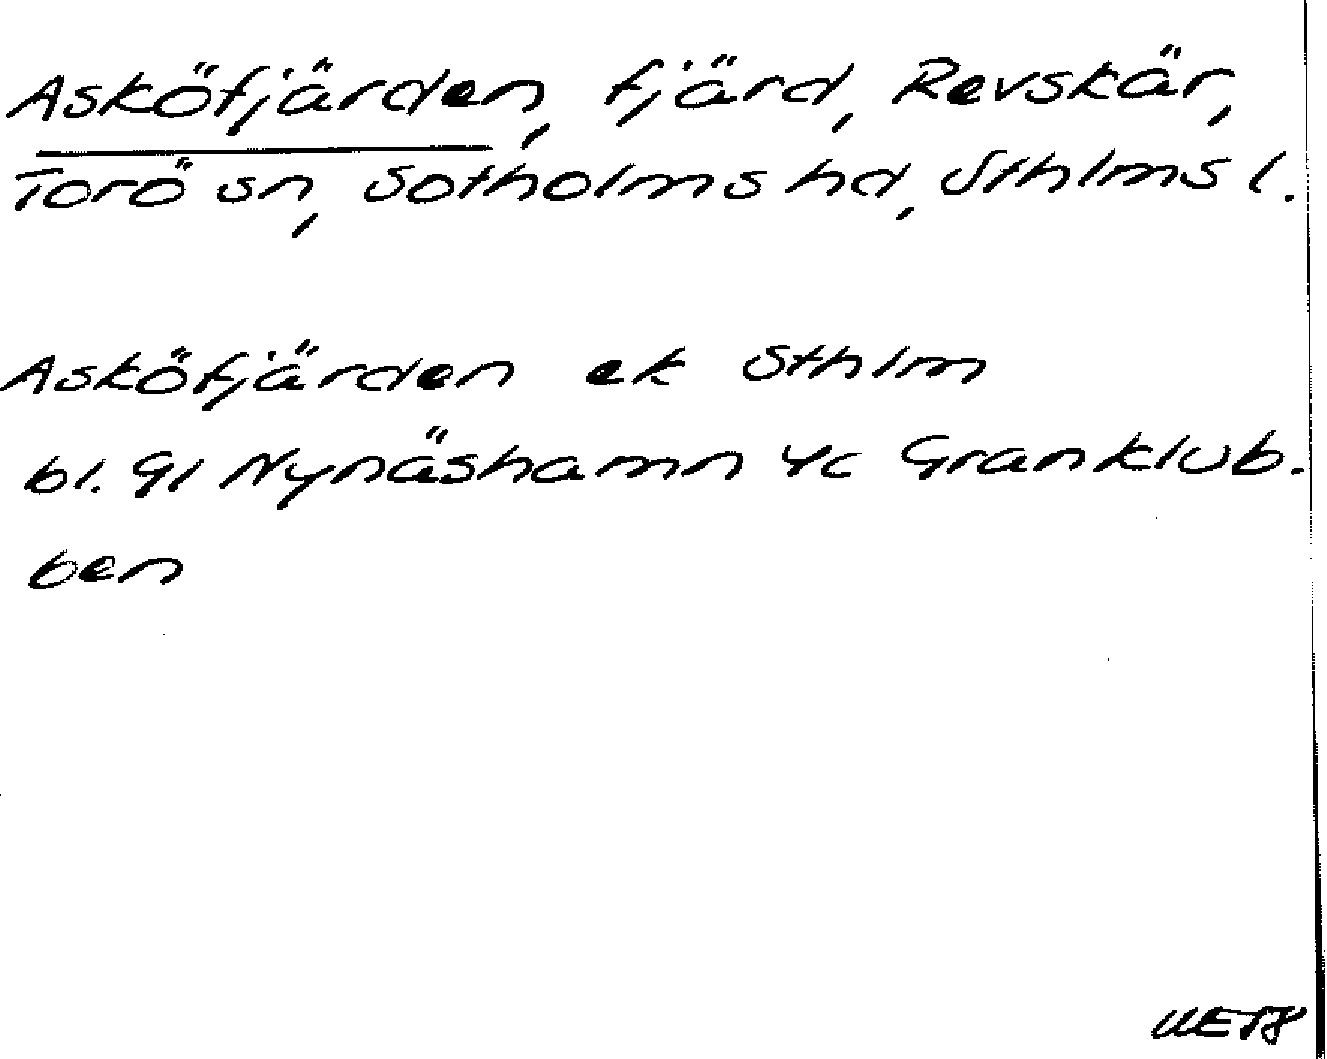 Asköfjärden, fjärd, Revskär,
Torö sn, Sotholms hd, Sthlms l.
Asköfjärden ek Sthlm
bl. 91 Nynäshamn 4c Granklub-
ben